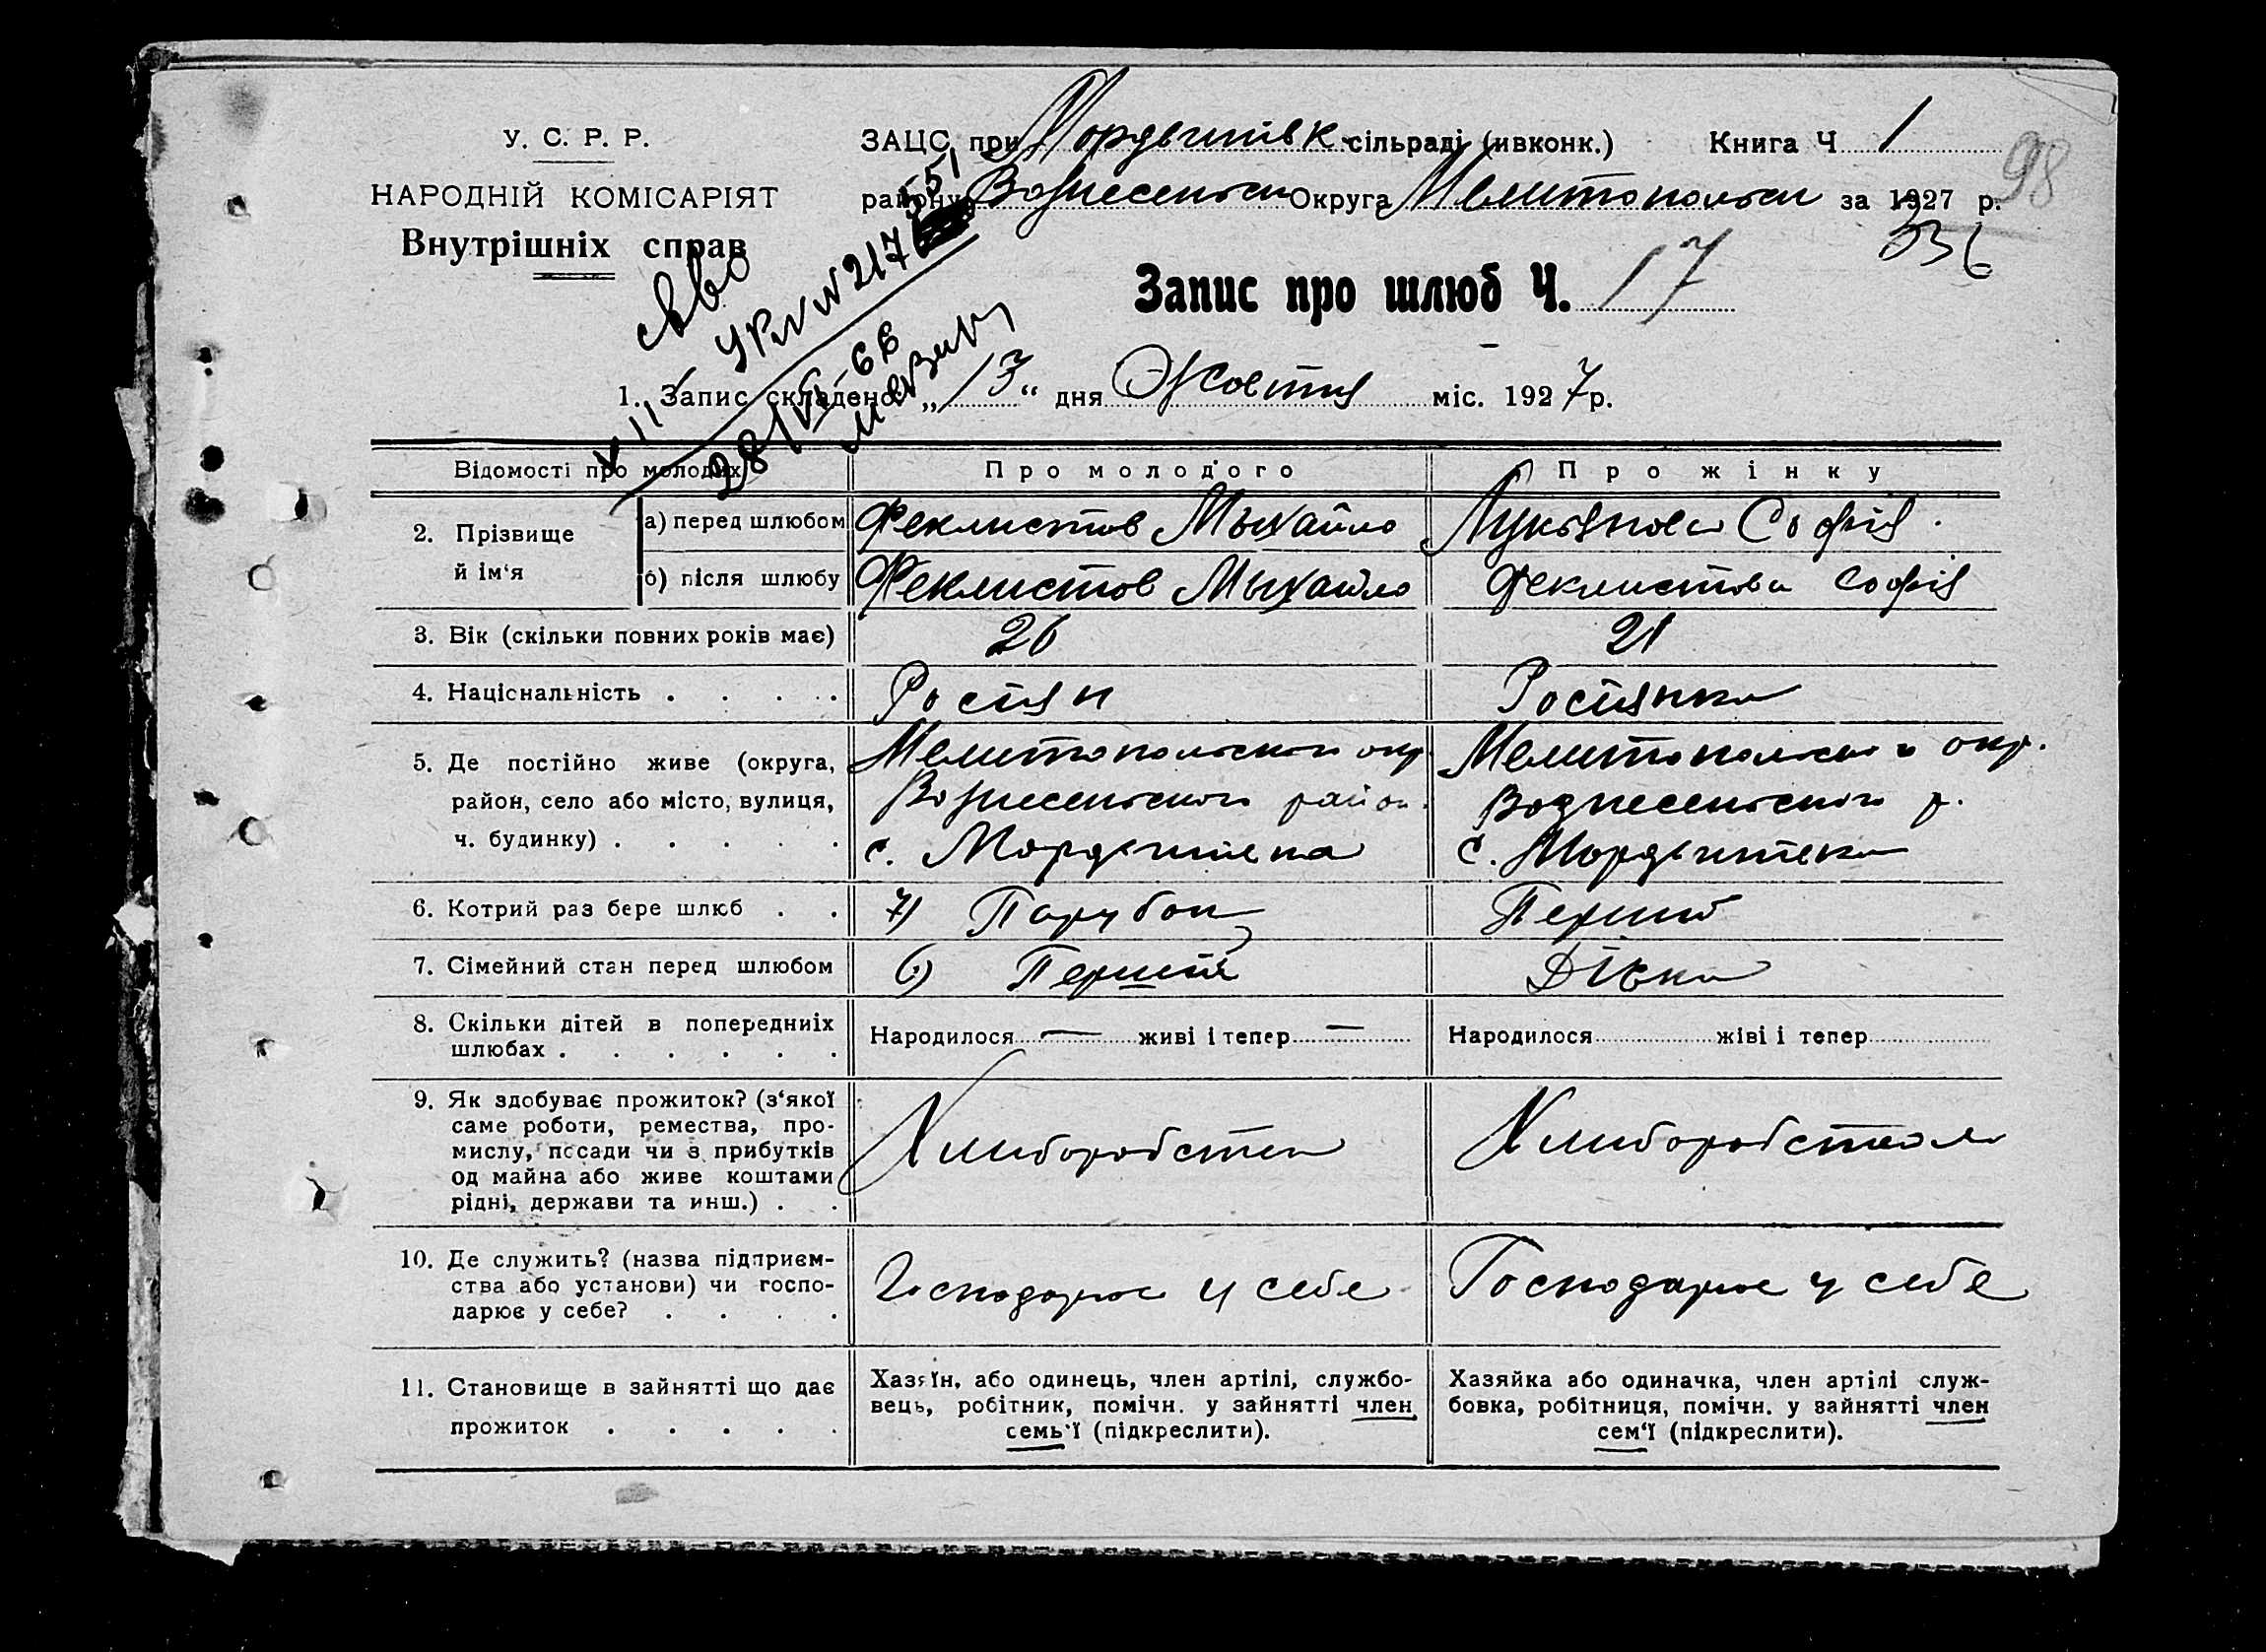 У. С. Р. Р.
НАРОДНІЙ КОМІСАРІЯТ
Внутрішніх справ
ЗАЦС при Мордвинівк сільраді (ивконк.) Книга Ч 1
98
району Вознесенськ Округа Мелитопольськ за 1927 р.
336
Запис про шлюб Ч. 17
сво
VII УРN N 217 551
28/VI-66
1. Запис складено „13“ дня Жовтня міс. 1927 р.
Відомості про молодих Про молодого Про жінку
2. Прізвище й ім‘я
а) перед шлюбом Феклистов Мыхайло Лукьянова Софія
б) після шлюбу Феклистов Мыхайло Феклистова Софія
3. Вік (скільки повних років має) 26 21
4. Національність . . . . Росіян Росіянка
5. Де постійно живе (округа, Мелитопольского окр. Мелитопольского окр.
район, село або місто, вулиця, Вознесенського район. Вознесенського р.
ч. будинку) . . . . . с. Мордвинівка с. Мордвинівка
6. Котрий раз бере шлюб . . 7) Парубок Перший
7. Сімейний стан перед шлюбом 6) Перший Дівка
8. Скільки дітей в попередниіх
шлюбах . . . . . .
Народилося — живі і тепер —
Народилося жіві і тепер
9. Як здобуває прожиток? (з‘якої
саме роботи, ремества, про-
мислу, посади чи з прибутків
од майна або живе коштами
рідні, держави та инш.) . .
Хлиборобство
Хлиборобством
10. Де служить? (назва підприєм-
ства або установи) чи госпо-
дарює у себе? . . . .
Господарює у себе
Господарює у себе
11. Становище в зайнятті що дає
прожиток . . . . .
Хазяїн, або одинець, член артілі, службо-
вець, робітник, помічн. у зайнятті член
семь‘ї (підкреслити).
Хазяйка або одиначка, член артілі служ-
бовка, робітниця, помічн. у зайнятті член
сем‘ї (підкреслити).